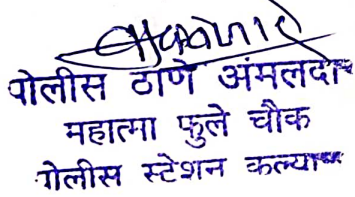 पोलीस ठाणे अंमलदार
महात्मा फुले चौक
पोलीस स्टेशन कल्याण